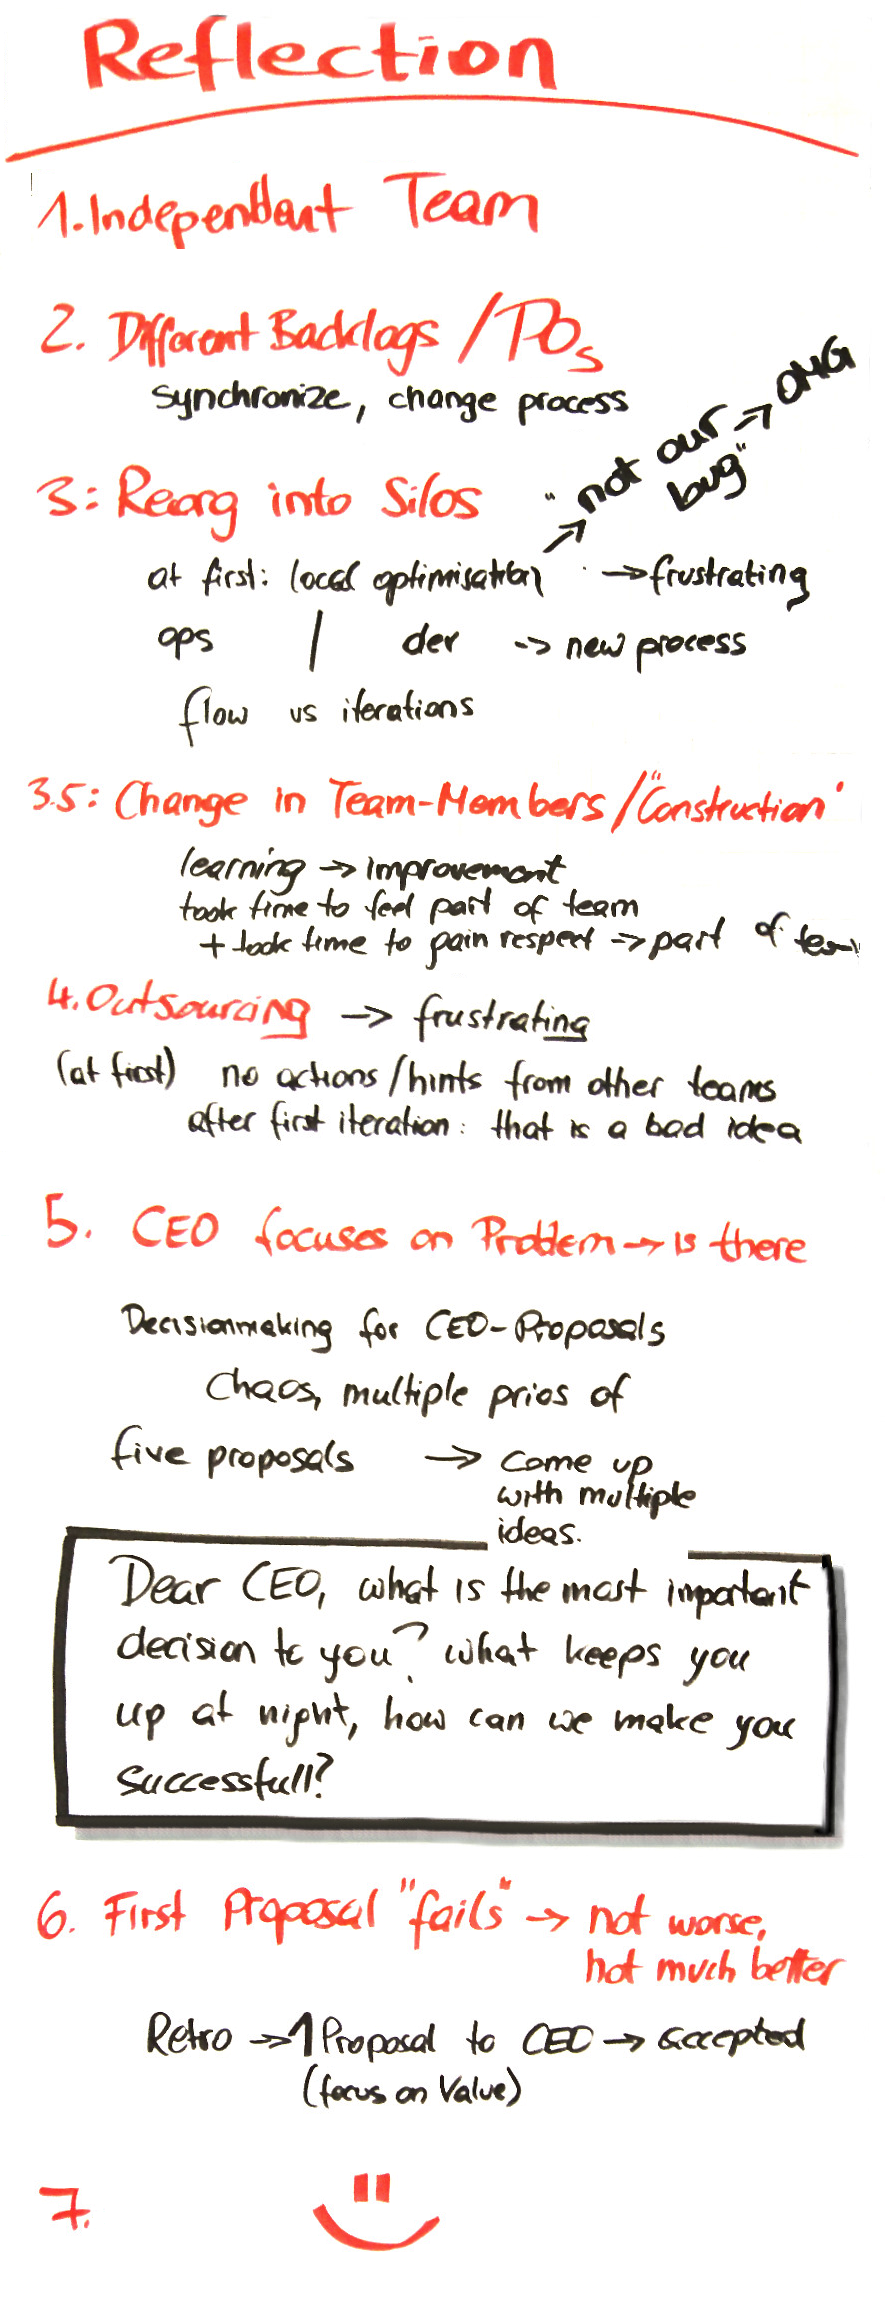 Reflection
1. Independant Team
2. Different Backlogs / POs
synchronize, change process
3: Reorg into Silos
"not our bug" → OMG
at first: local optimisation → frustrating
ops | dev -> new process
flow vs iterations
3.5: Change in Team-Members / "Construction"
learning → improvement
took time to feel part of team
+ took time to gain respect → part of team
4. Outsourcing → frustrating
(at first) no actions / hints from other teams
after first iteration: that is a bad idea
5. CEO focuses on Problem → is there
Decisionmaking for CEO-Proposals
Chaos, multiple prios of
five proposals → come up
with multiple
ideas.
Dear CEO, what is the most important
decision to you? what keeps you
up at night, how can we make you
successfull?
6. First Proposal "fails" → not worse,
not much better
Retro → 1 Proposal to CEO → accepted
(focus on Value)
7.